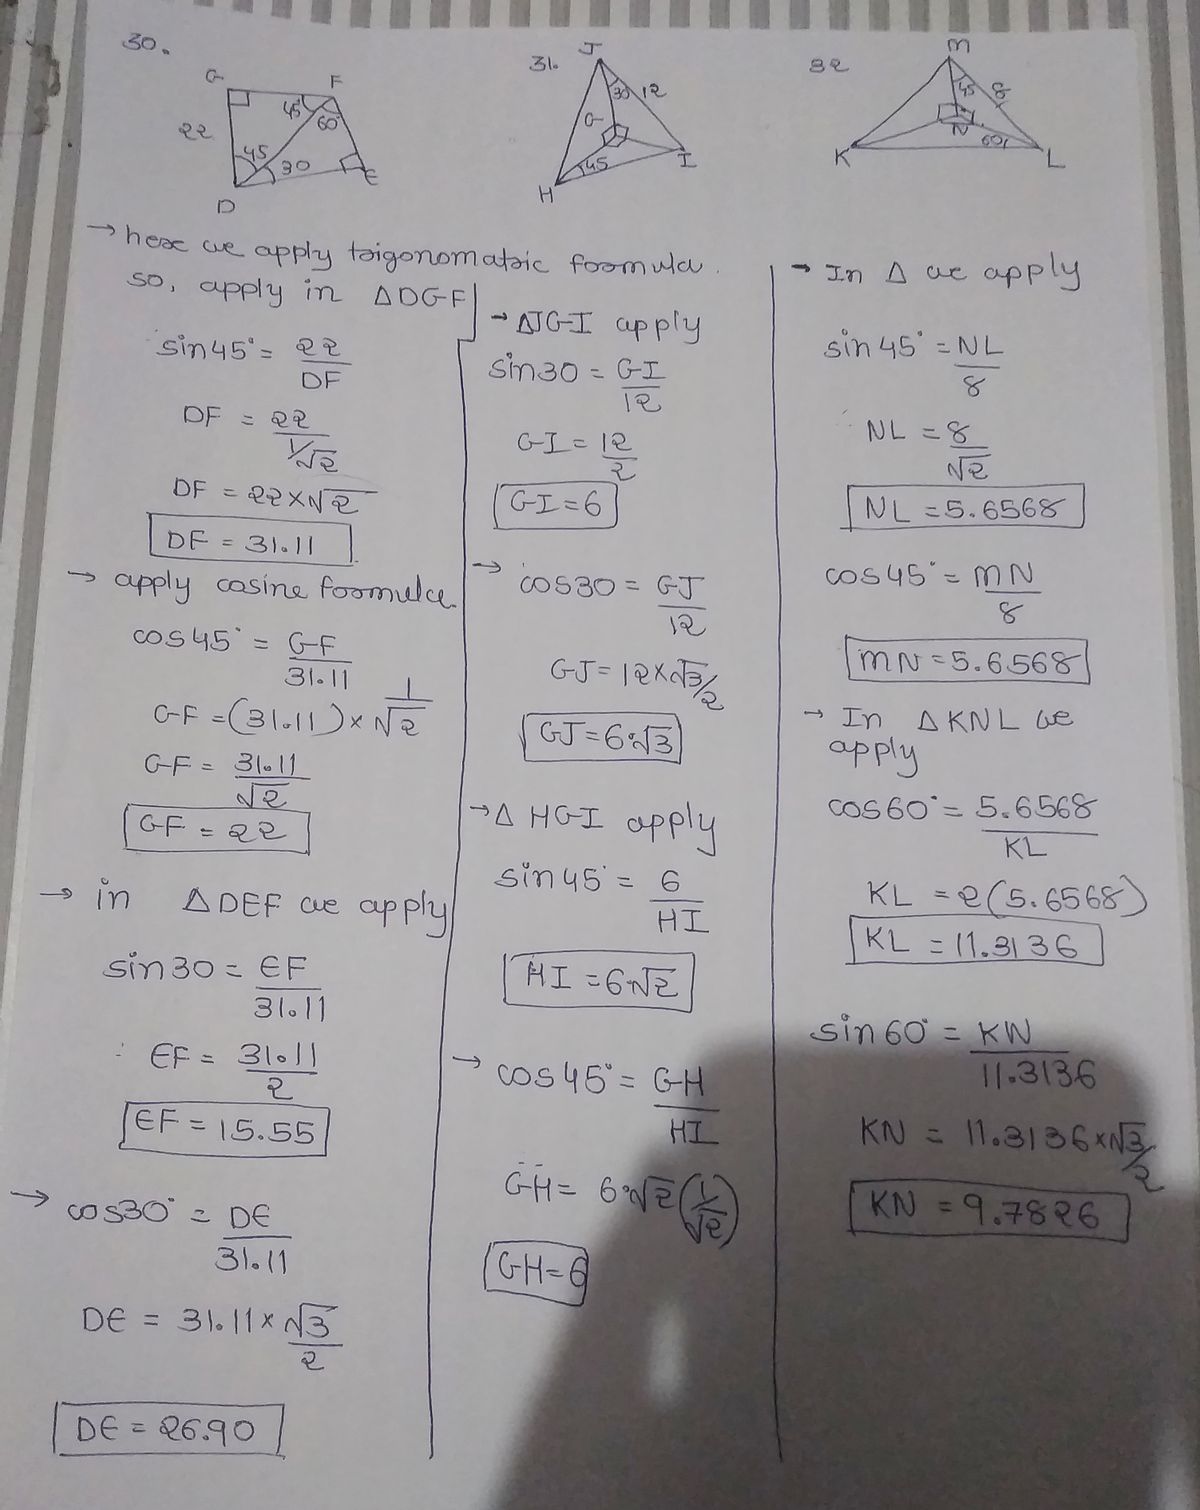 30.
G
F
22
45°
60°
45
30
D
E
31.
J
30
12
G
I
45
H
32
M
45
8
N
60
K
L
→ here we apply trigonomatric formula.
so, apply in ΔDGF
sin45° = 22/DF
DF = 22/1/√2
DF = 22×√2
DF = 31.11
→ apply cosine formula.
cos45° = GF/31.11
GF = (31.11) × 1/√2
GF = 31.11/√2
GF = 22
→ in ΔDEF we apply
sin30 = EF/31.11
EF = 31.11/2
EF = 15.55
→ cos30° = DE/31.11
DE = 31.11×√3/2
DE = 26.90
→ ΔJGI apply
sin30 = GI/12
GI = 12/2
GI = 6
→ cos30 = GJ/12
GJ = 12×√3/2
GJ = 6·√3
→ Δ HGI apply
sin45° = 6/HI
HI = 6·√2
→ cos45° = GH/HI
GH = 6·√2 (1/√2)
GH = 6
→ In Δ we apply
sin45° = NL/8
NL = 8/√2
NL = 5.6568
cos45° = MN/8
MN = 5.6568
→ In ΔKNL we
apply
cos60° = 5.6568/KL
KL = 2(5.6568)
KL = 11.3136
sin60° = KN/11.3136
KN = 11.3136×√3/2
KN = 9.7826